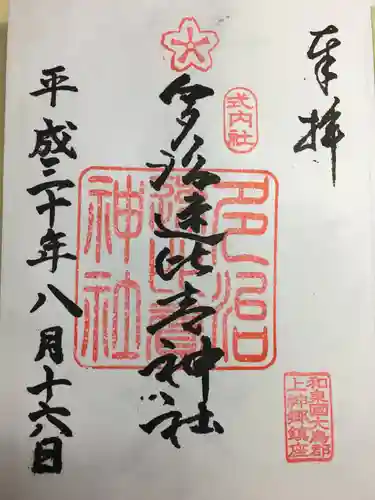 奉拝
式内社
多治速比売神社
多治
速比賣
神社
平成三十年八月十六日
和泉国大鳥郡
上神郷鎮座